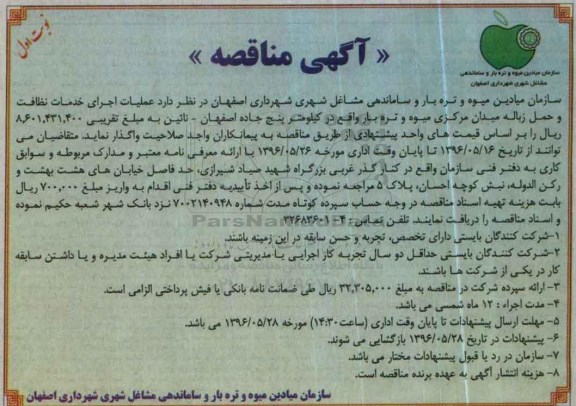 نوبت اول
« آگهی مناقصه »
سازمان میادین میوه و تره بار و ساماندهی
مشاغل شهری شهرداری اصفهان
سازمان میادین میوه و تره بار و ساماندهی مشاغل شهری شهرداری اصفهان در نظر دارد عملیات اجرای خدمات نظافت
و حمل زباله میدان مرکزی میوه و تره بار واقع در کیلومتر پنج جاده اصفهان - نائین به مبلغ تقریبی ۸,۶۰۱,۴۳۱,۴۰۰
ریال را بر اساس قیمت های واحد پیشنهادی از طریق مناقصه به پیمانکاران واجد صلاحیت واگذار نماید. متقاضیان می
توانند از تاریخ ۱۳۹۶/۰۵/۱۶ تا پایان وقت اداری مورخه ۱۳۹۶/۰۵/۲۶ با ارائه معرفی نامه معتبر و مدارک مربوطه و سوابق
کاری به دفتر فنی سازمان واقع در کنار گذر غربی بزرگراه شهید صیاد شیرازی، حد فاصل خیابان های هشت بهشت و
رکن الدوله، نبش کوچه احسان، پلاک ۵ مراجعه نموده و پس از اخذ تأییدیه دفتر فنی اقدام به واریز مبلغ ۷۰۰,۰۰۰ ریال
بابت هزینه تهیه اسناد مناقصه در وجه حساب سپرده کوتاه مدت شماره ۷۰۰۲۱۴۰۹۴۸ نزد بانک شهر شعبه حکیم نموده
و اسناد مناقصه را دریافت نمایند. تلفن تماس: ۴-۳۲۶۸۳۶۰۱
۱-شرکت کنندگان بایستی دارای تخصص، تجربه و حسن سابقه در این زمینه باشند.
۲-شرکت کنندگان بایستی حداقل دو سال تجربه کار اجرایی یا مدیریتی شرکت یا افراد هیئت مدیره و یا داشتن سابقه
کار در یکی از شرکت ها باشند.
۳- ارائه سپرده شرکت در مناقصه به مبلغ ۳۲,۳۰۵,۰۰۰ ریال طی ضمانت نامه بانکی یا فیش پرداختی الزامی است.
۴- مدت اجراء : ۱۲ ماه شمسی می باشد.
۵- مهلت ارسال پیشنهادات تا پایان وقت اداری (ساعت ۱۴:۳۰) مورخه ۱۳۹۶/۰۵/۲۸ می باشد.
۶- پیشنهادات در تاریخ ۱۳۹۶/۰۵/۲۸ بازگشایی می شوند.
۷- سازمان در رد یا قبول پیشنهادات مختار می باشد.
۸- هزینه انتشار آگهی به عهده برنده مناقصه است.
سازمان میادین میوه و تره بار و ساماندهی مشاغل شهری شهرداری اصفهان